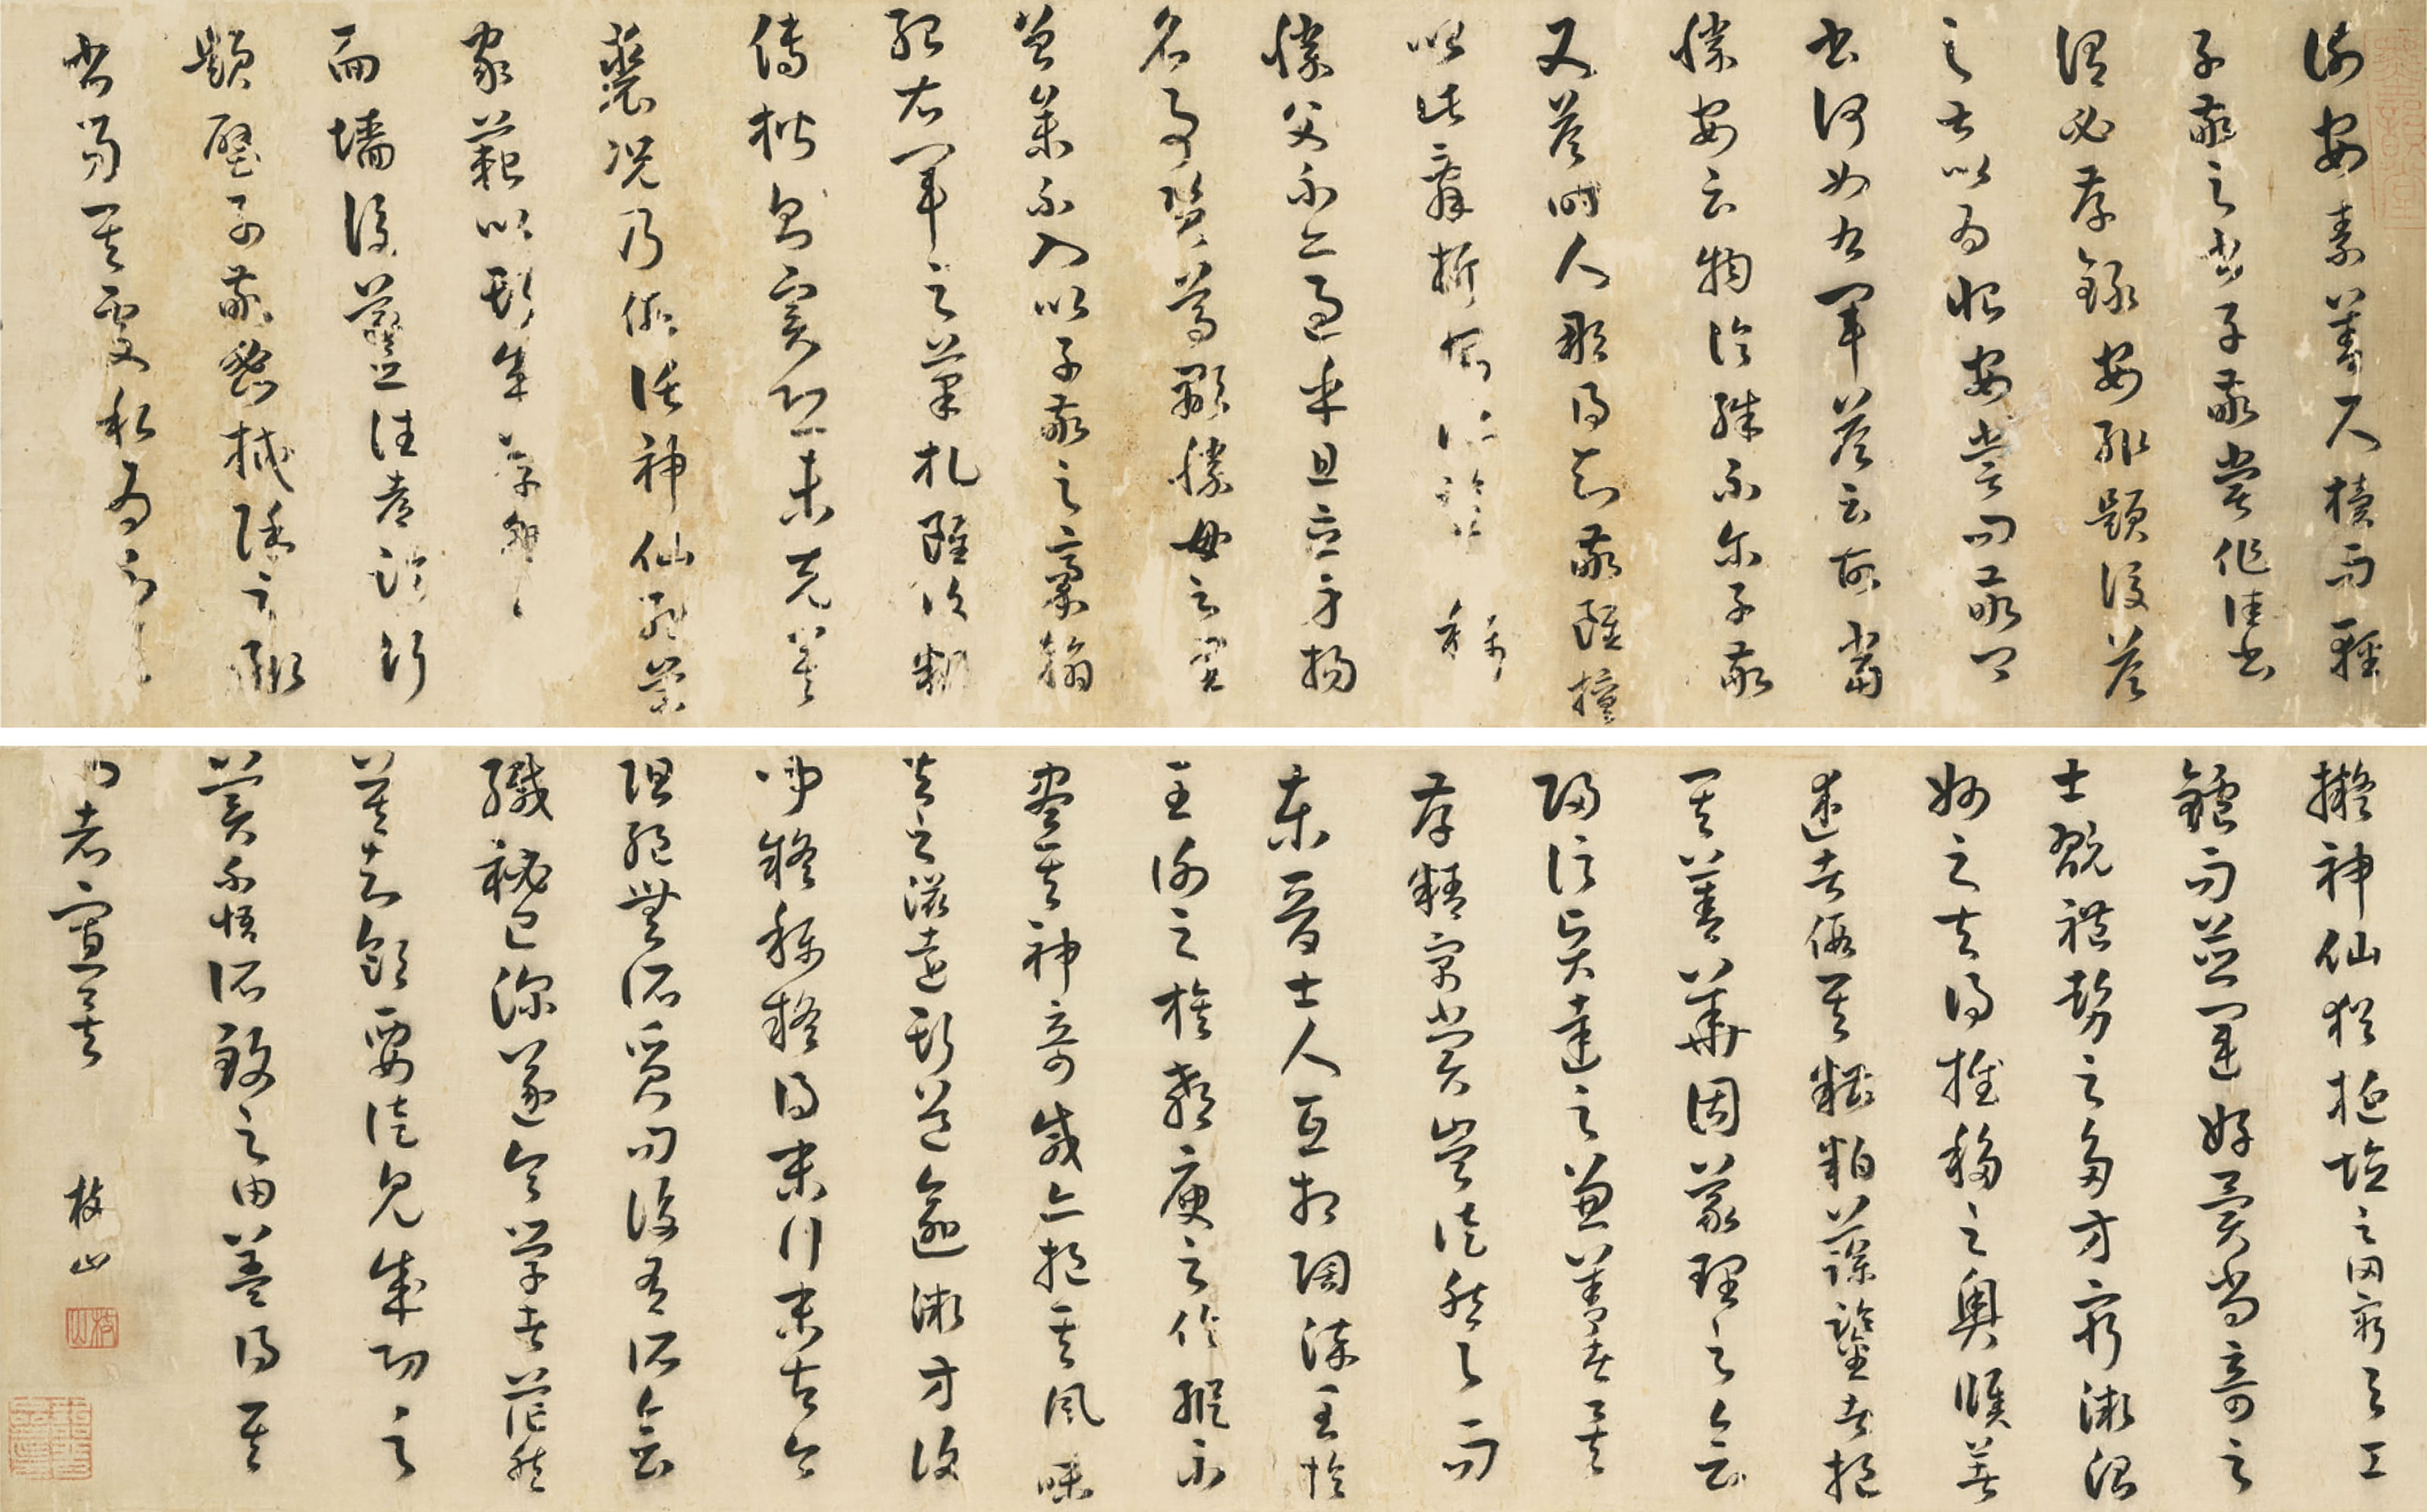 謝安素善尺牘而輕
子敬之書子敬嘗作佳書
謂必存錄安輒題後答
之甚以為恨安嘗問敬卿
書何如右軍答云故當
勝安云物論殊不爾子敬
又答時人那得知敬雖權
以此辭折安所鑒 稱
勝父不亦過乎且立身揚
名事資尊顯勝母之里
曾參不入以子敬之豪翰
紹右軍之筆札雖復粗
傳楷則實恐未克箕
裘況乃假託神仙恥崇
家範以斯成學孰愈
面墻後羲之往都臨行
題壁子敬密拭除之輒
書易其處私為不
擬神仙猶埏埴之罔窮與工
鑪而並運好異尚奇之
士翫體勢之多方窮微測
妙之夫得推移之奧賾著
述者假其糟粕藻鑒者挹
其菁華固義理之會
歸信賢達之兼善者矣
存精寓賞豈徒然與而
東晉士人互相陶淬至於
王謝之族郗庾之倫縱不
盡其神奇咸亦挹其風味
去之滋永斯道愈微方復
聞疑稱疑得末行末古今
阻絕無所質問設有所會
緘秘已深遂令學者茫然
莫知領要徒見成功之
美不悟所致之由蓋得其
門者寡矣 枝山
枝山